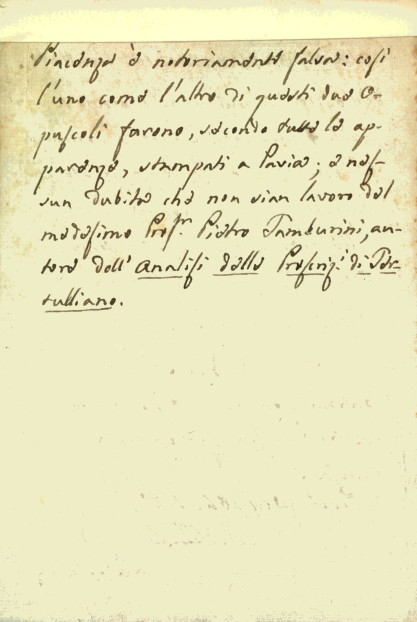 Piacenza è notoriamente falsa: così
l'uno come l'altro di questi due O-
puscoli furono, secondo tutte le ap-
parenze, stampati a Pavia; e nes-
sun dubita che non sian lavoro del
medesimo Profr. Pietro Tamburini, au-
tore dell'Analisi delle Prescriz.i di Ter-
tulliano.